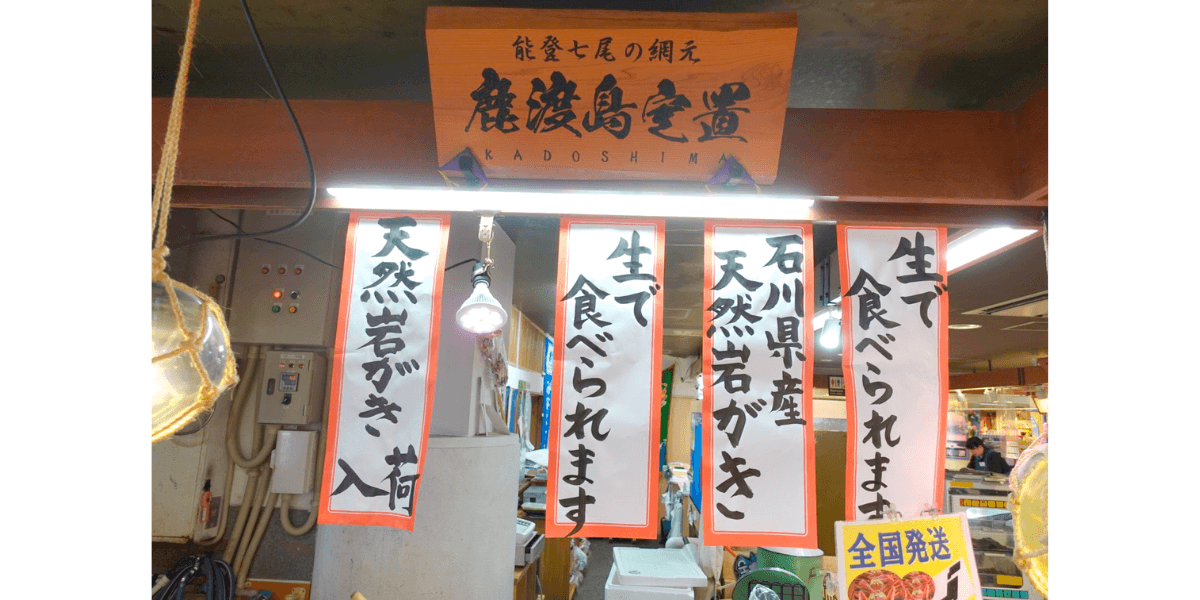 能登七尾の網元
鹿渡島定置
KADOSHIMA
天然岩がき
入荷
生で
食べられます
石川県産
天然岩がき
生で
食べられます
全国発送